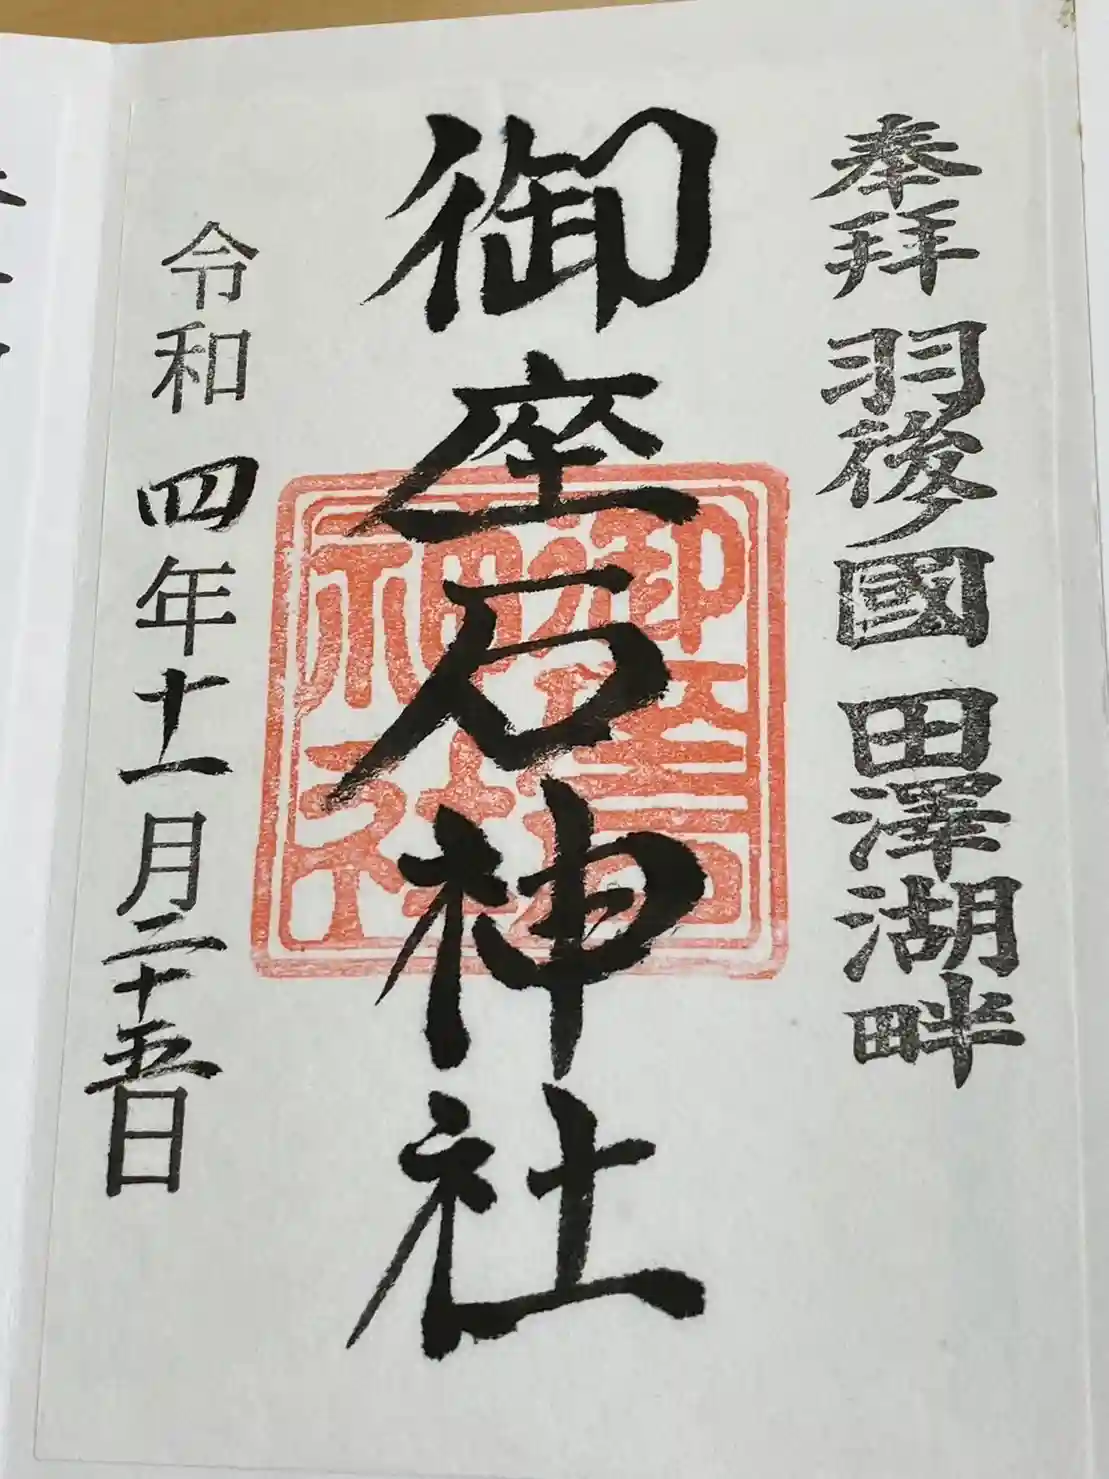 奉拜 羽後國 田澤湖畔
御座石神社
御座石神社
令和四年十一月二十五日